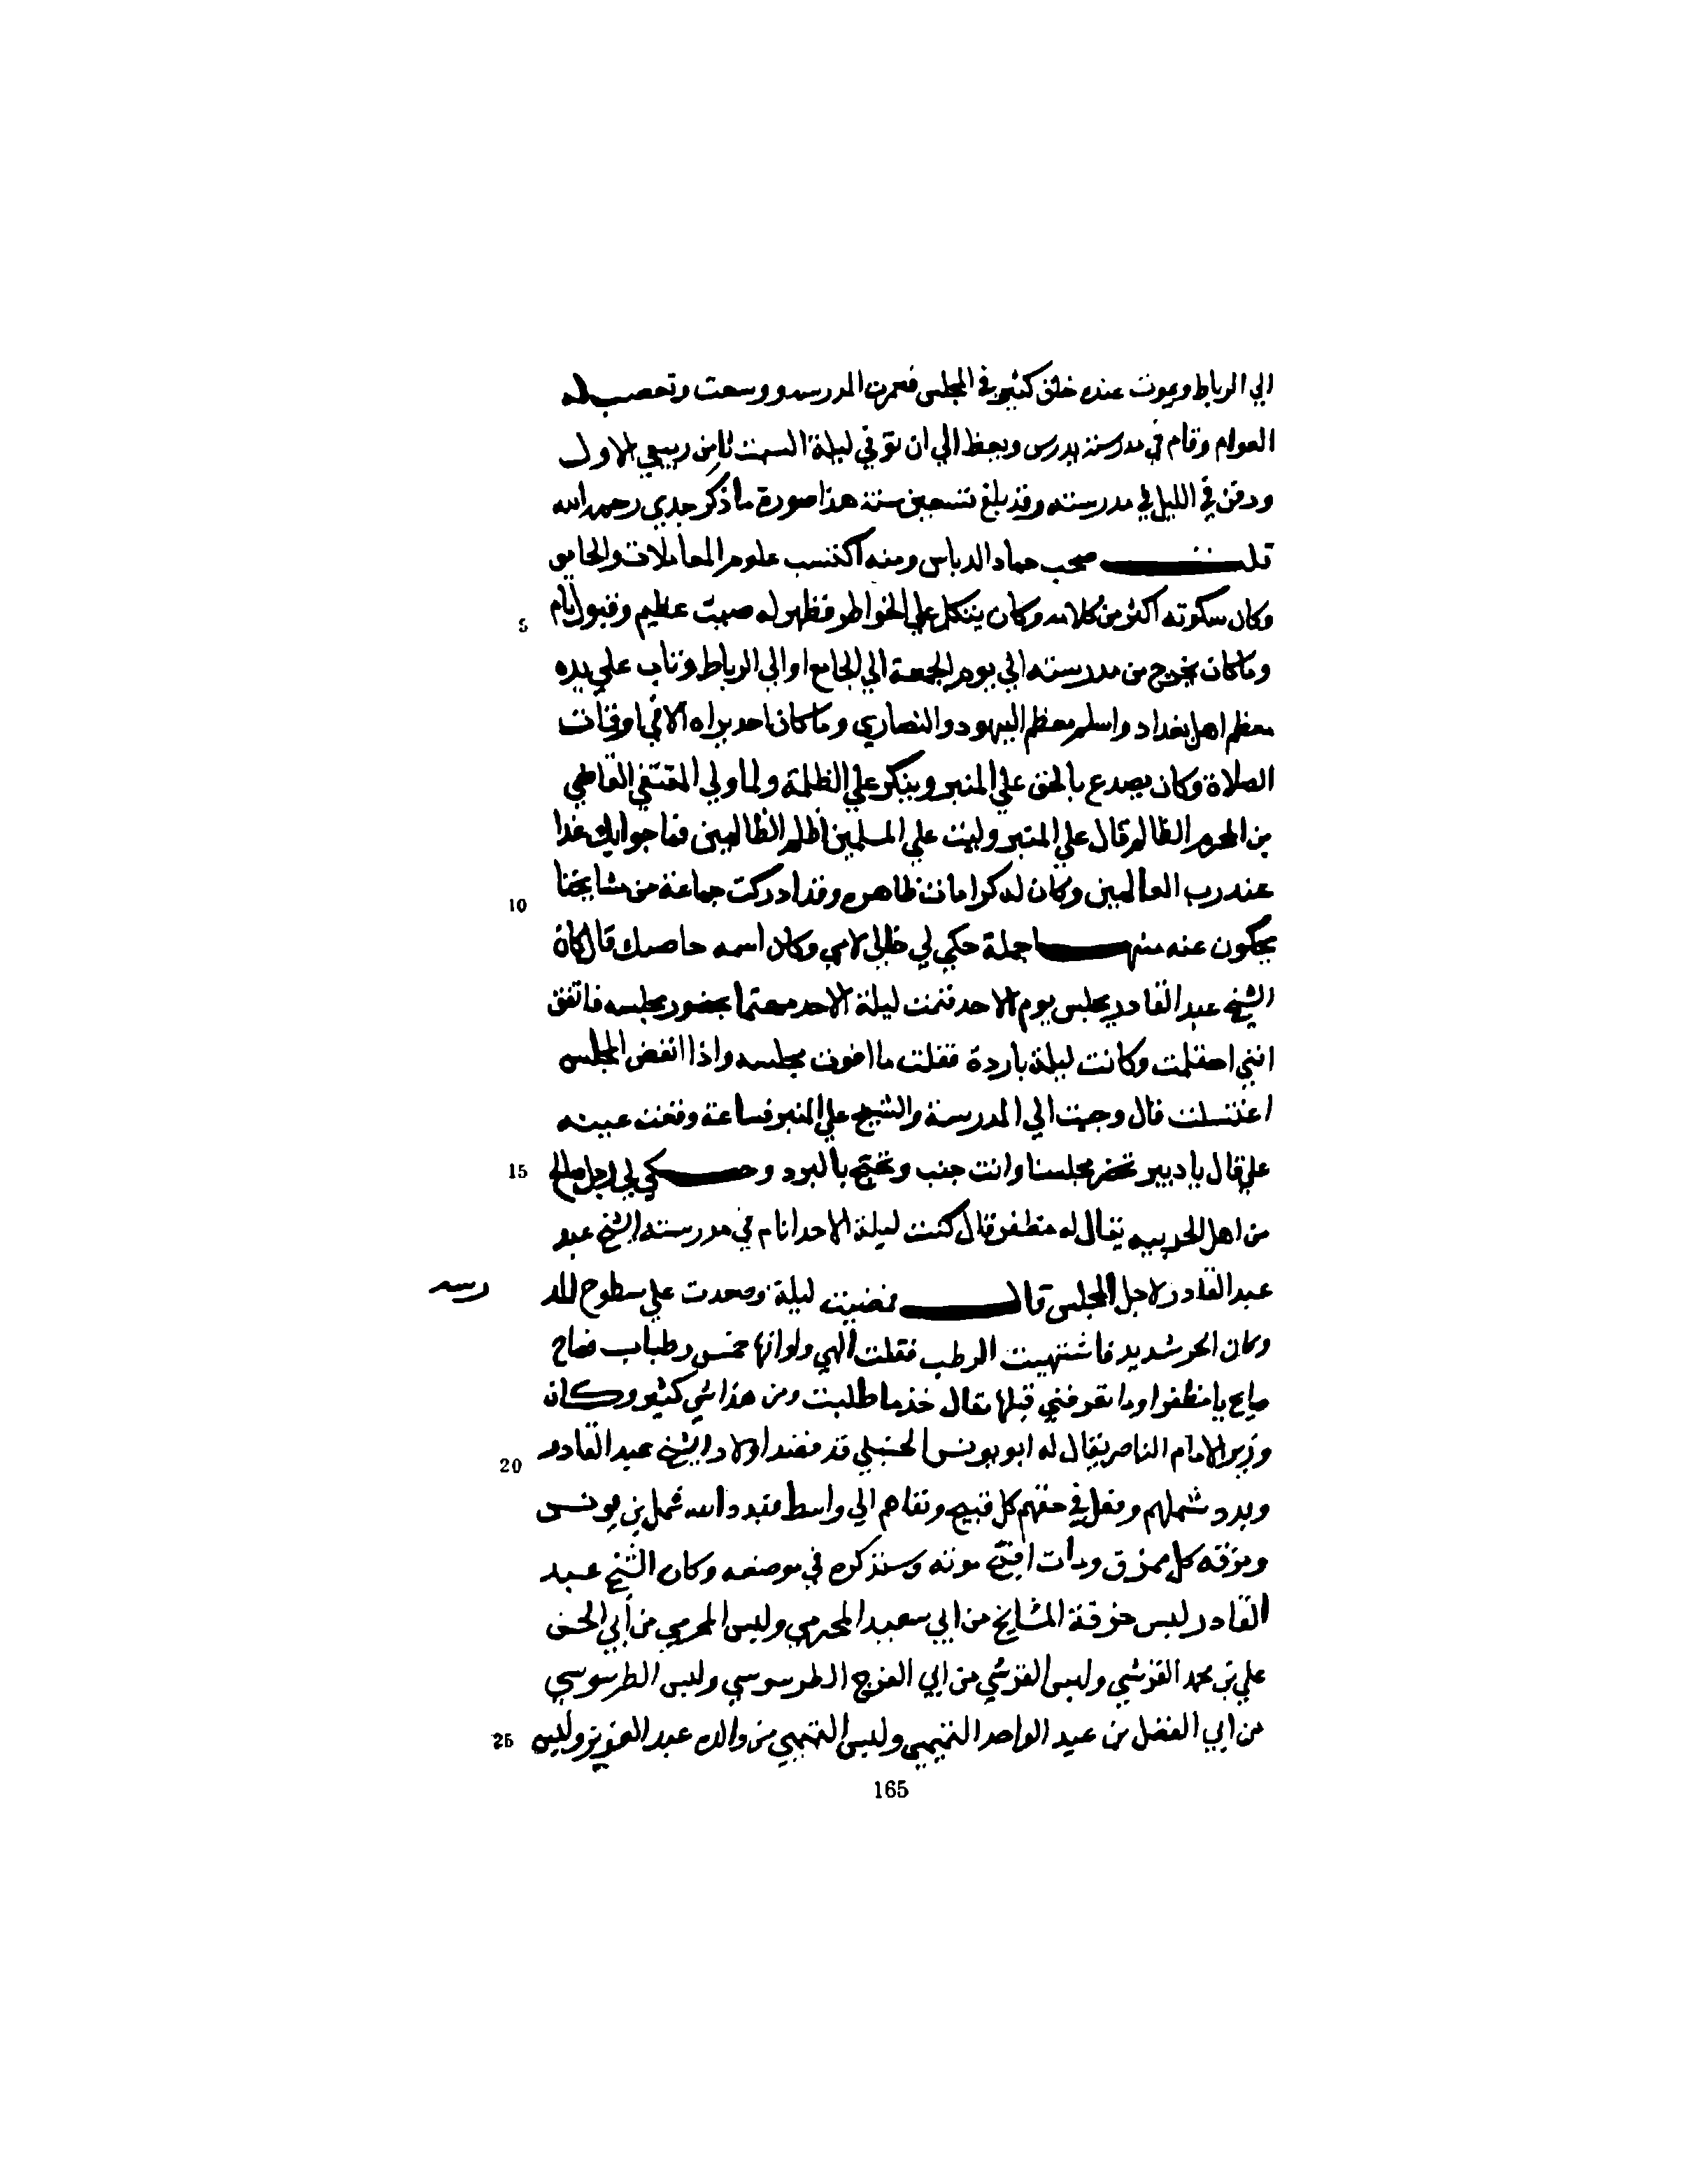 الي الرباط ويموت عنده خلق كثير في المجلس فعمرت المدرسه ووسعت وتعصب له
العوام وقام في مدرسته يدرس ويعظ الي ان توفي ليلة السبت ثامن ربيع الاول
ودفن في الليل في مدرسته وقد بلغ تسعين سنة هذا صورة ما ذكر جدي رحمه الله
قلت صحب حماد الدباس ومنه اكتسب علوم المعاملات والحقايق
وكان سكوته اكثر من كلامه وكان يتكلم علي الخواطر فظهر له صيت عظيم وقبول تام
5
وما كان يخرج من مدرسته الي يوم الجمعة الي الجامع او الي الرباط وتاب علي يده
معظم اهل بغداد واسلم معظم اليهود والنصاري وما كان احد يراه الا في اوقات
الصلاة وكان يصدع بالحق علي المنبر وينكر علي الظلمة ولما ولي المقتفي القاضي
بن المحرم الظالم قال علي المنبر وليت علي المسلمين اظلم الظالمين فما جوابك غدا
عند رب العالمين وكان له كرامات ظاهره وقد ادركت جماعة من مشايخنا
10
يحكون عنه منها جملة حكي لي خالي لامي وكان اسمه خاصبك قال كان
الشيخ عبد القادر يجلس يوم الاحد فنمت ليلة الاحد مهتما بحضور مجلسه فاتفق
انني احتلمت وكانت ليلة باردة فقلت ما افوت مجلسه واذا انفض المجلس
اغتسلت قال وجيت الي المدرسة والشيخ علي المنبر فساعة وقعت عينه
علي قال يا دبير تحضر مجلسنا وانت جنب وتحتج بالبرد وحكي لي رجل صالح
15
من اهل الحربيه يقال له مظفر قال كنت ليلة الاحد انام في مدرسته الشيخ عبد
عبد القادر لاجل المجلس قال فمضيت ليلة وصعدت علي سطوح المد
رسه
وكان الحر شديد فاشتهيت الرطب فقلت الهي ولو انها خمس رطباب فصاح
صايح يا مظفر وما تعرفني قبلها فقال خذ ما طلبت ومن هذا شي كثير وكان
وزير الامام الناصر يقال له ابو يونس الحنبلي قد قصد اولاد الشيخ عبد القادر
20
وبدد شملهم وفعل في حقهم كل قبيح ونفاهم الي واسط فبدد الله شمل بن يونس
ومزقه كل ممزق ومات اقبح موته وسنذكره في موضعه وكان الشيخ عبد
القادر لبس خرقة المشايخ من ابي سعيد المخرمي ولبس المخرمي من أبي الحسن
علي بن محمد القرشي ولبس القرشي من ابي الفرج الطرسوسي ولبس الطرسوسي
من ابي الفضل بن عبد الواحد التميمي ولبس التميمي من والده عبد العزيز ولبس
25
165